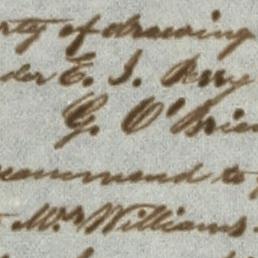 rty of drawing
der E. J. Perry
G. O'Brien
recommend to
Mr Williams